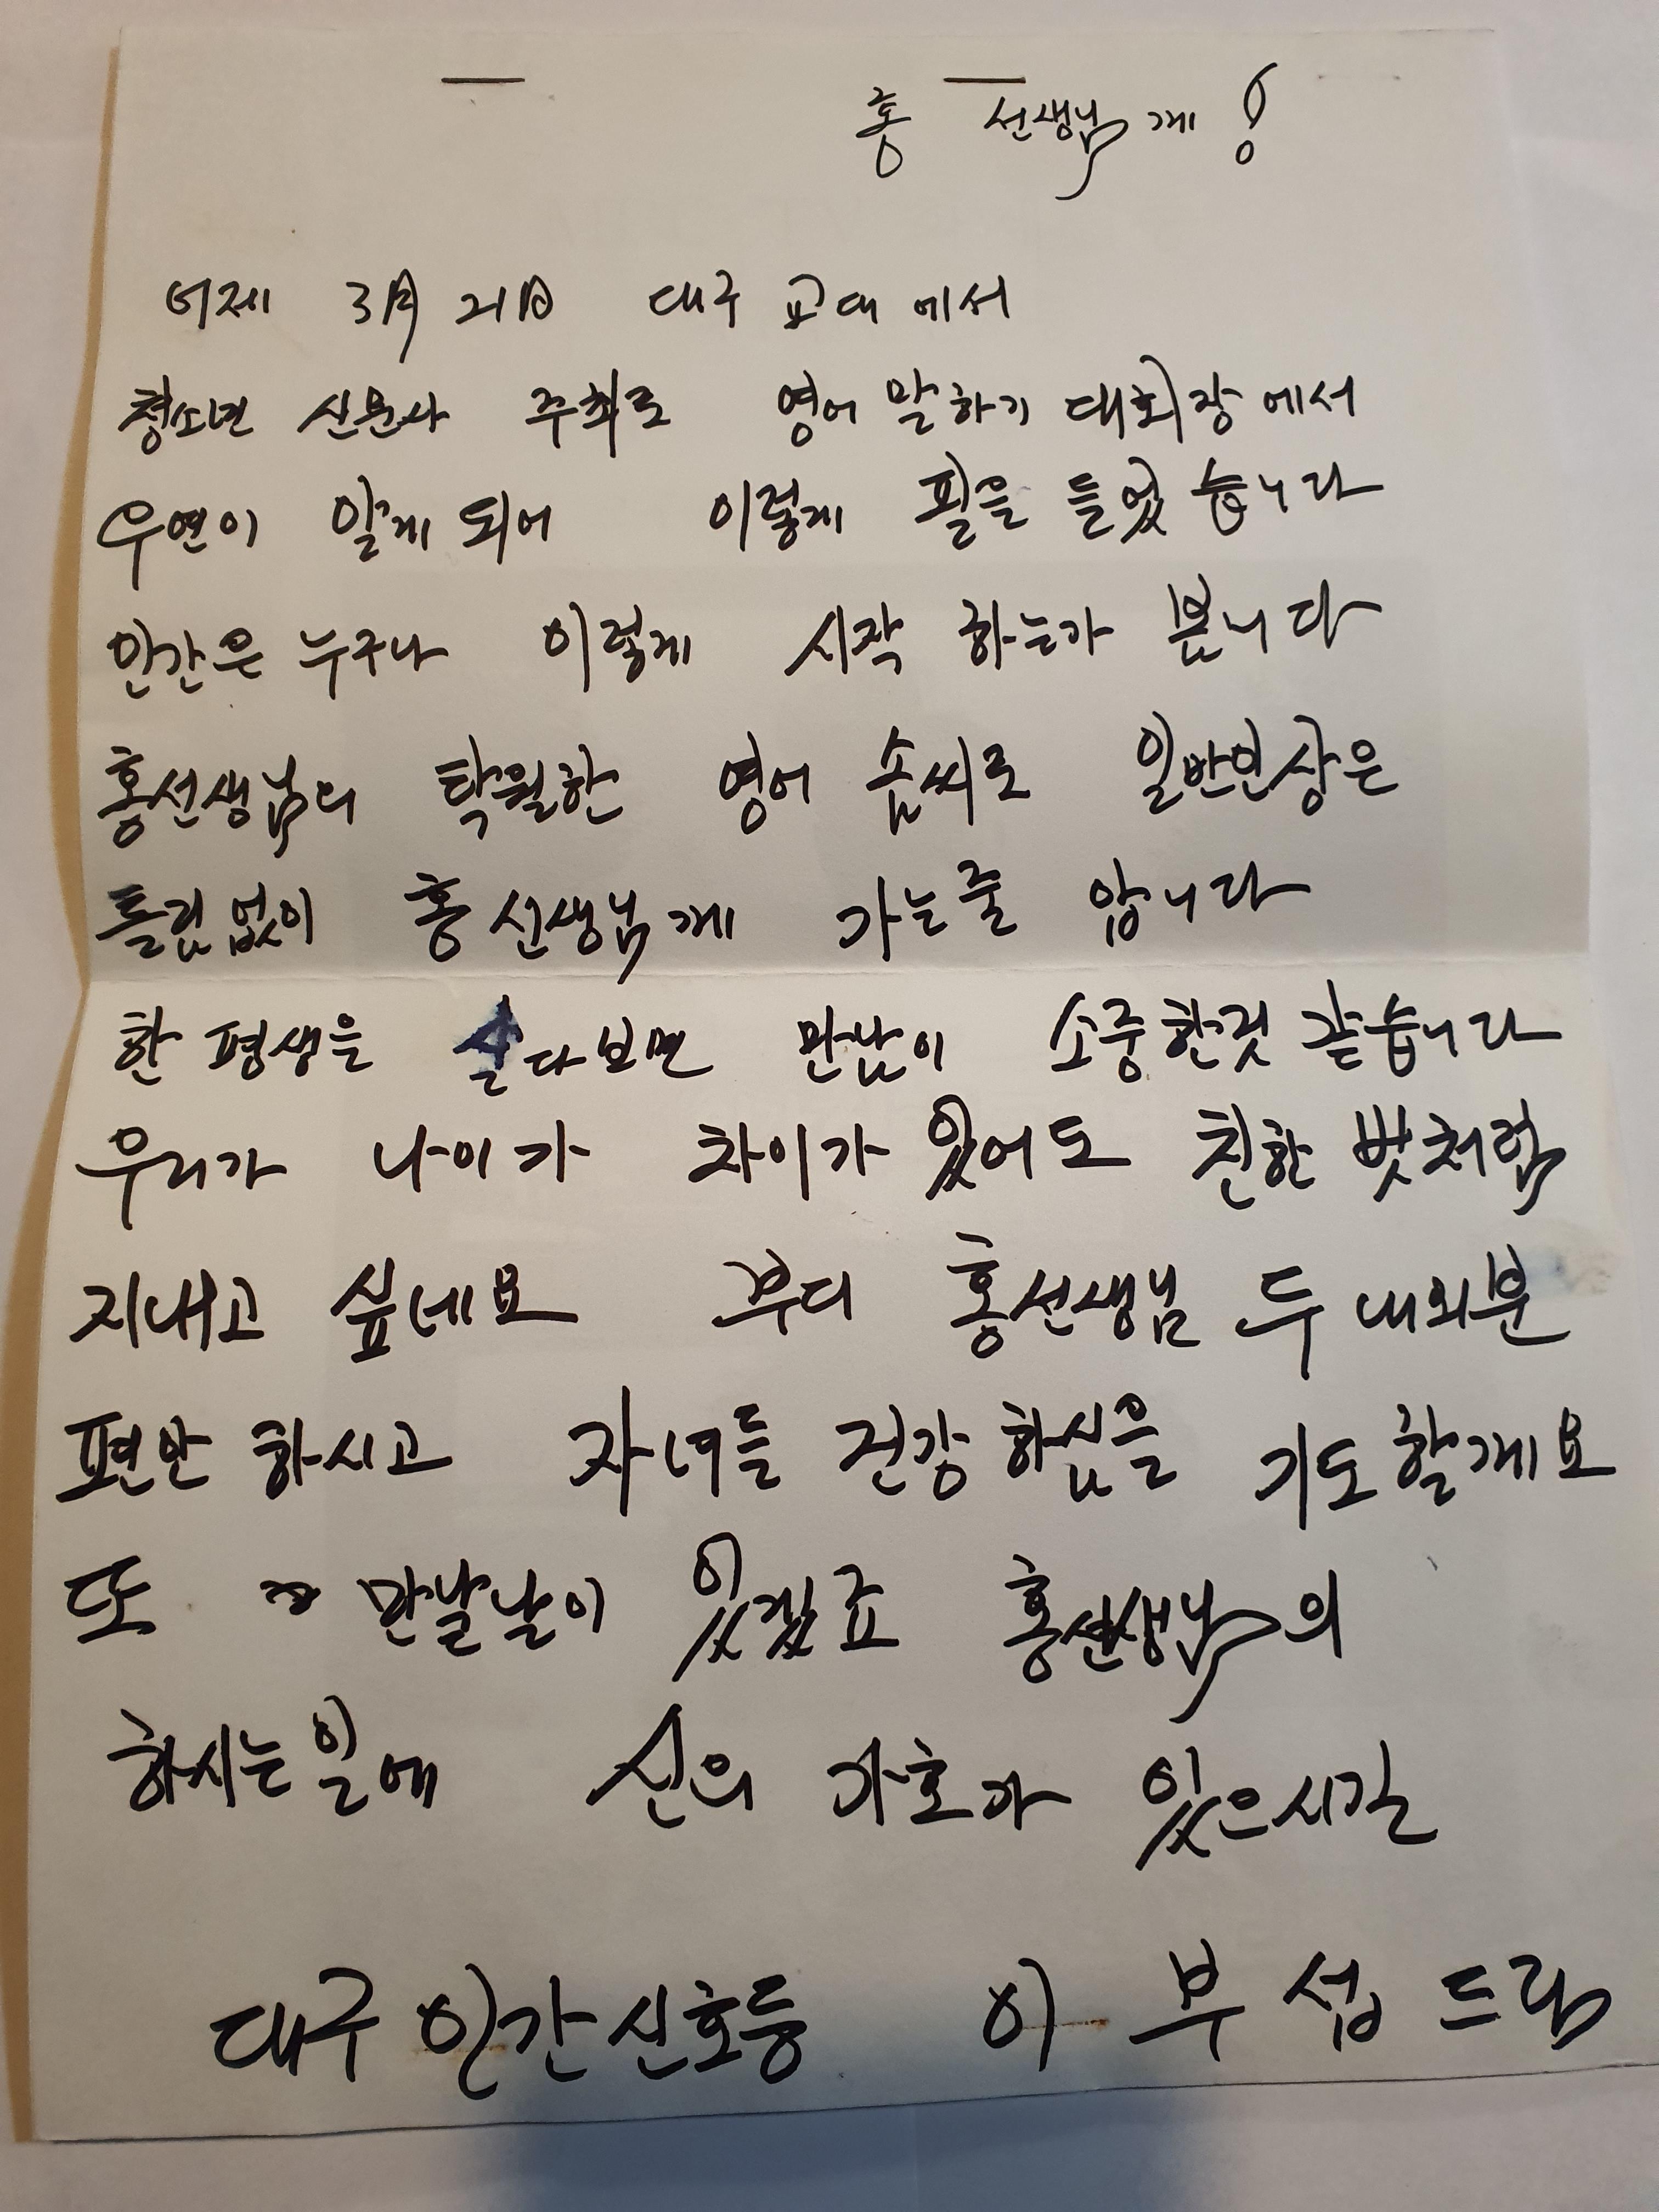 홍 선생님께!
어제 3月 21日 대구 교대에서
청소년 신문사 주최로 영어 말하기 대회장에서
우연이 알게 되어 이렇게 필을 들었습니다
인간은 누구나 이렇게 시작 하는가 봅니다
홍선생님의 탁월한 영어 솜씨로 일반인상은
틀림없이 홍선생님께 가는줄 압니다
한 평생을 살다보면 만남이 소중한것 같습니다
우리가 나이가 차이가 있어도 친한 벗처럼
지내고 싶네요 부디 홍선생님 두 내외분
편안 하시고 자녀들 건강 하심을 기도할께요
또 만날날이 있겠죠 홍선생님의
하시는일에 신의 가호가 있으시길
대구 인간신호등 이 부 섭 드림